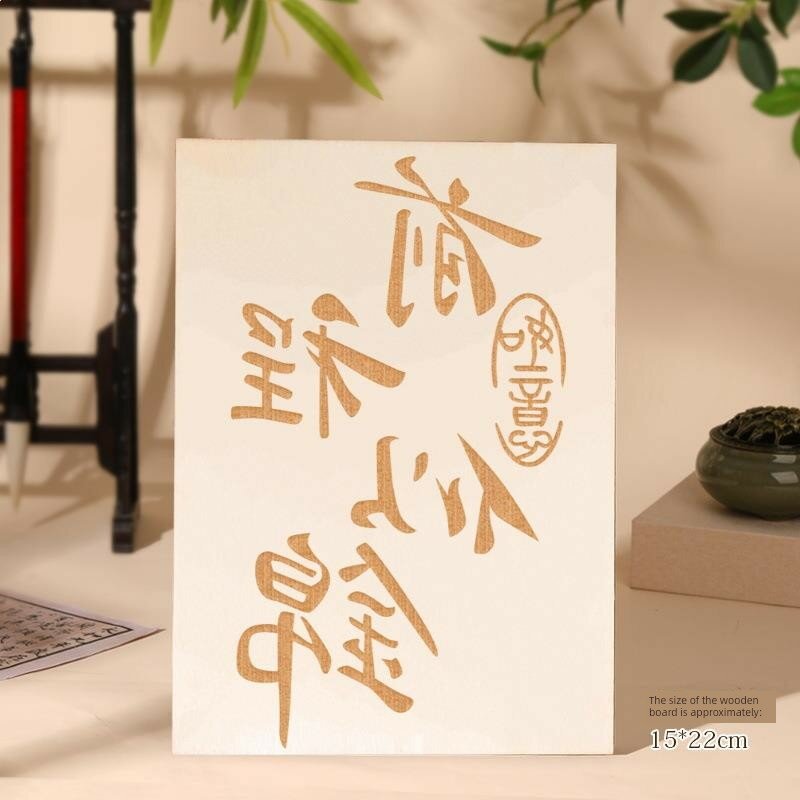 前程
似锦
如意
The size of the wooden
board is approximately:
15*22cm